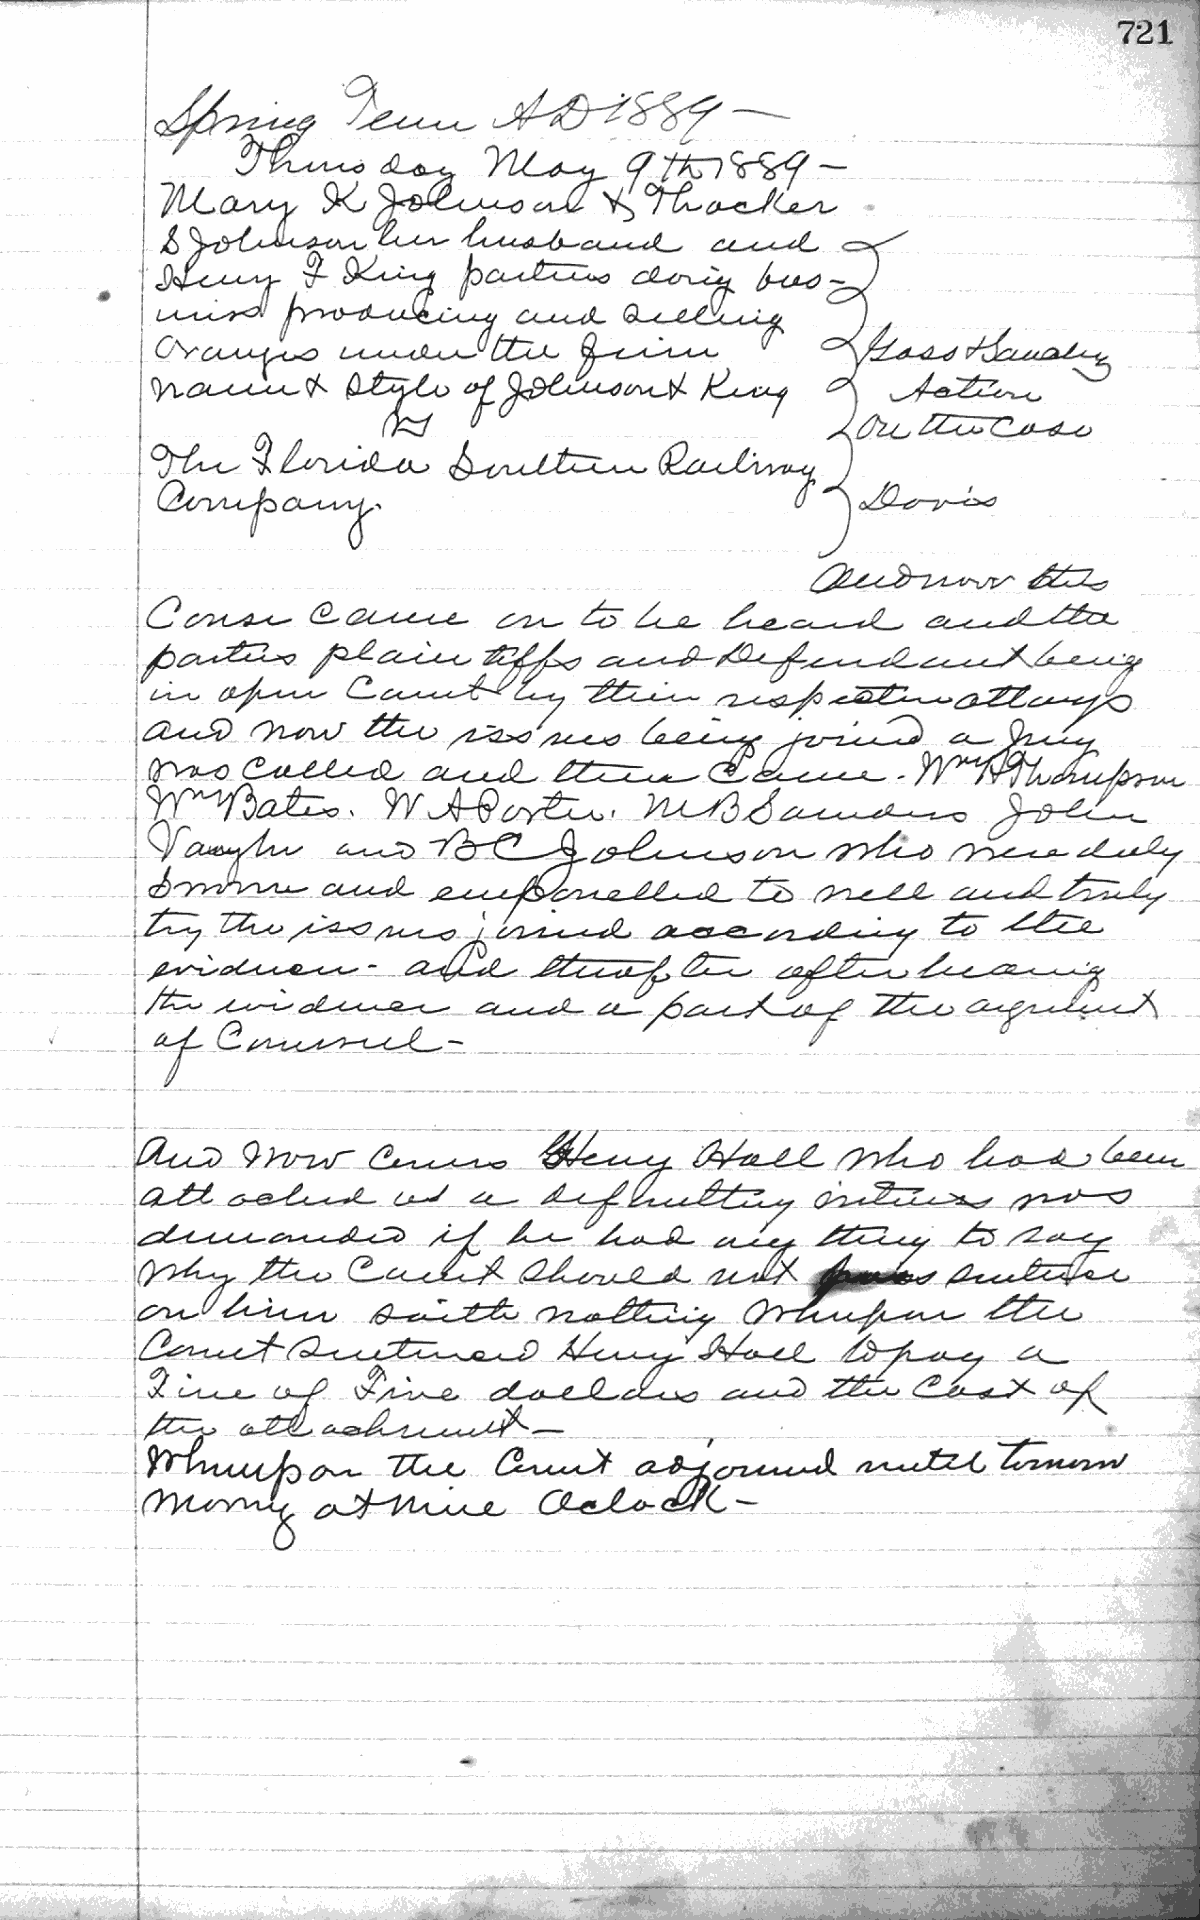 721
Spring Term AD 1889 —
Thursday May 9th 1889 —
Mary K Johnson & Thacker
S Johnson her husband and
Henry F King parties doing bus-
iness producing and selling
Oranges under the firm
name & style of Johnson & King
vs
The Florida Southern Railway
Company.
Action
on the Case
Davis
And now this
Cause came on to be heard and the
parties plaintiffs and Defendant being
in open Court by their respective attorneys
and now the issues being joined a Jury
was called and then came. Wm H Thompson
Wm Bates. W A Porter. M B Saunders John
Vaughn and B C Johnson who were duly
sworn and empanelled to well and truly
try the issues joined according to the
evidence - and thereafter after hearing
the evidence and a part of the argument
of Counsel -
And Now comes Henry Hall who had been
attached as a defaulting witness was
demanded if he had any thing to say
why the Court should not pass sentence
on him saith nothing Whereupon the
Court sentenced Henry Hall to pay a
Fine of Five dollars and the Cost of
the attachment —
Whereupon the Court adjourned until tomorrow
morning at nine Oclock -